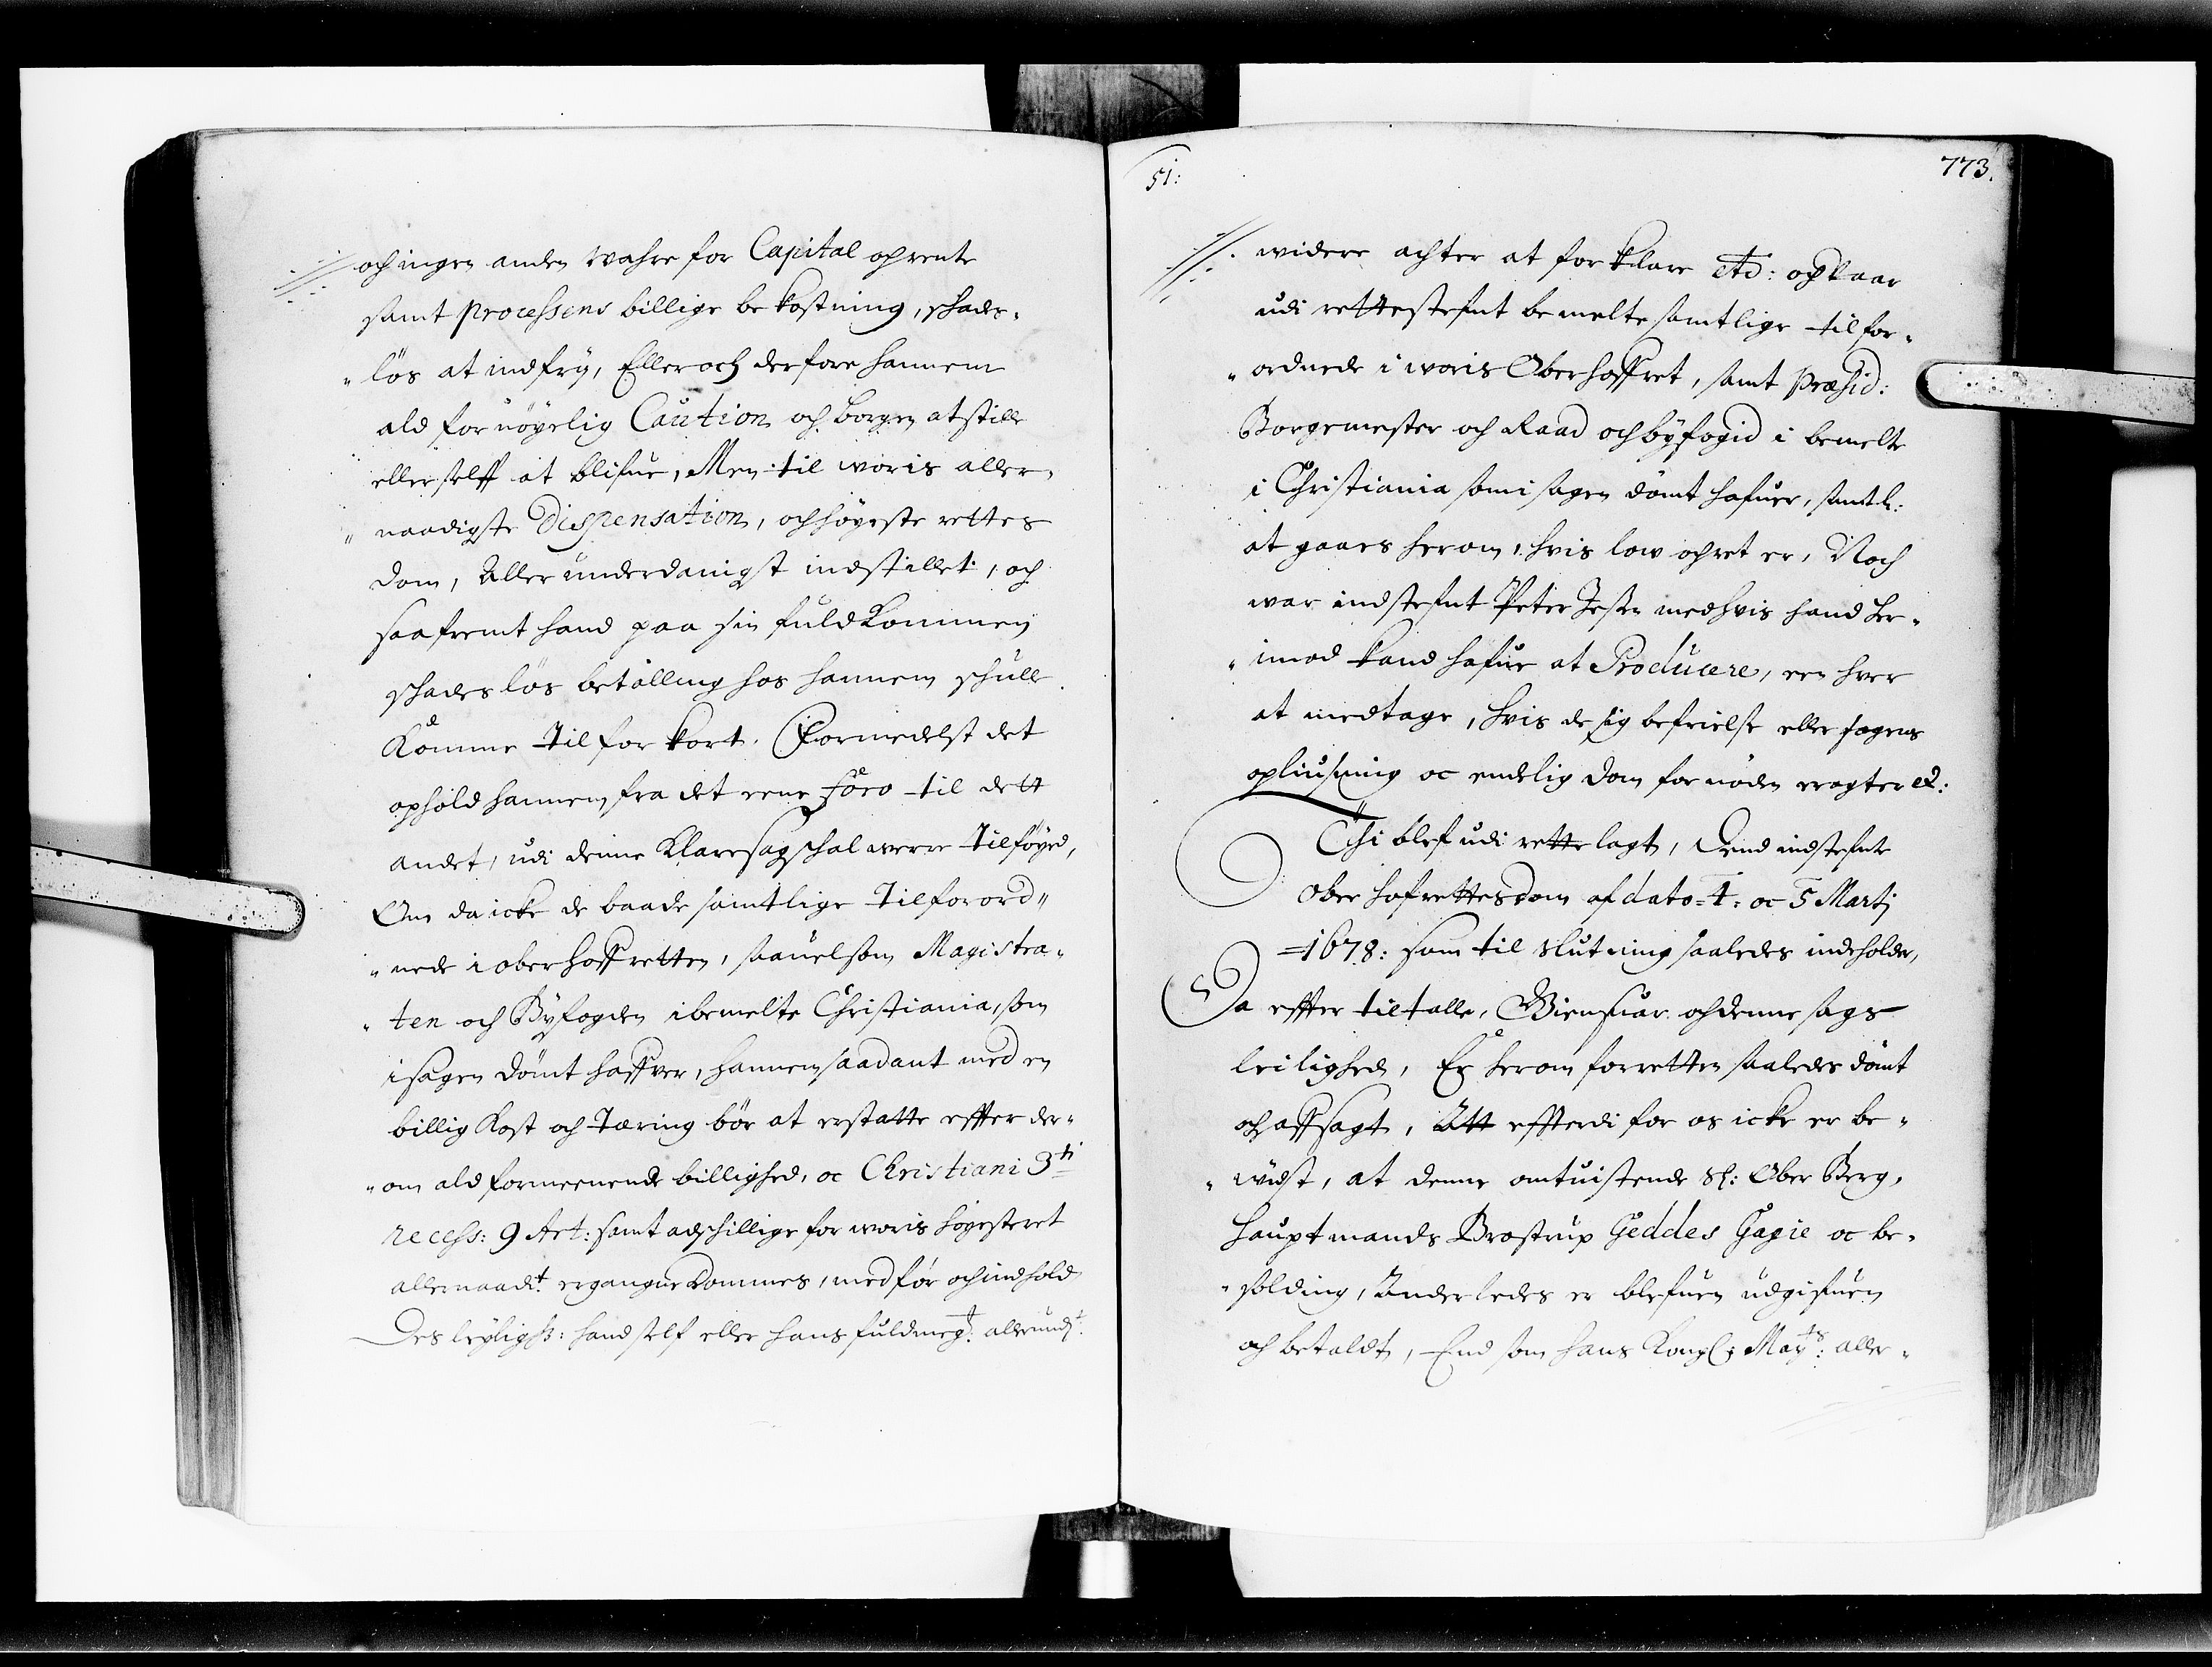 och ingen anden wahre for Capital och rente
samt processens billige bekostning, schades-
"lös at indfry, Eller och derfore hannem
ald fornöyelig Caution och borgen at stille
eller self at blifue, Men til woris aller-
"naadigste Dispensation, och höyeste rettes
dom, Aller underdanigst indstillet, och
saafremt hand paa sin fuldkommen
schadeslös betalling hos hannem schulle
komme til forkort. Formedelst det
ophold hannem fra det eene Foro til dett
andet, udi denne klare sag schal were tilföyed,
Om da icke de baade samtlige Tilforord"
"nede i oberhoffretten, saauelsom Magistra-
"ten och Byfogden i bemelte Christiania, som
i sagen dömt haffver, hannem saadant med en
billig Kost och Tæring bör at erstatte effter der-
"om ald formeenende billighed, oc Christiani 3ti
recess: 9 Art: samt adschillige for woris höyesteret
allernaadt: ergangne domme, med för och indhold
Des leyligh: hand self eller hans fuldmegt: allerundt:
51:
773.
widere achter at forklare etc: och waar
udi rettestefnt bemelte samtlige tilfor-
"ordnede i woris Oberhoffret, samt Præsid:
Borgemester och Raad och byfogid i bemelte
i Christiania som i sagen dömt hafuer, samtl:
at gaaes herom, hvis low och ret er, Noch
war indstefnt Peter Jessen med hvis hand her-
"imod kand hafue at Producere, een hver
at medtage, hvis de sig befrielse eller sagens
opliusning oc endelig dom fornöden eragter etc:
Thi blef udi rette lagt, Dend indstefnte
Ober hofrettes dom af dato 4: oc 5 Martj
1678: som til slutning saaledes indeholder,
Da effter tiltalle, Giensuar och denne sags
leilighed, Er herom for retten saaledes dömt
och affsagt, Att effterdi for os icke er be-
"widst, at denne omtuistende Sl: Ober Berg-
hauptmands Brostrup Geddes Gagie oc be-
"solding, Anderledes er blefuen udgifuen
och betaldt, End som hans Kongl: Mayts: aller-